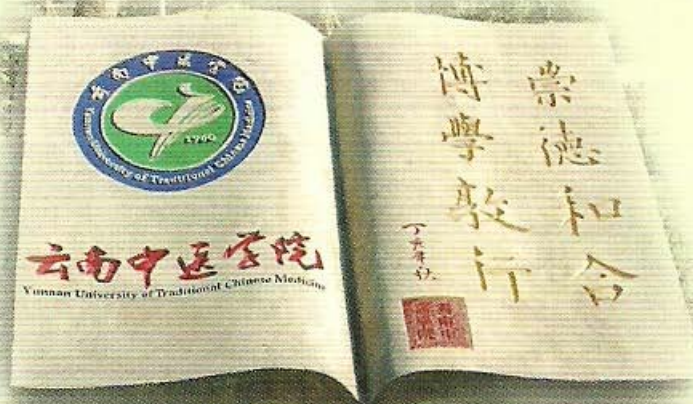 云南中医学院
1960
Yunnan University of Traditional Chinese Medicine
云南中医学院
Yunnan University of Traditional Chinese Medicine
崇德和合
博學敦行
丁亥年秋